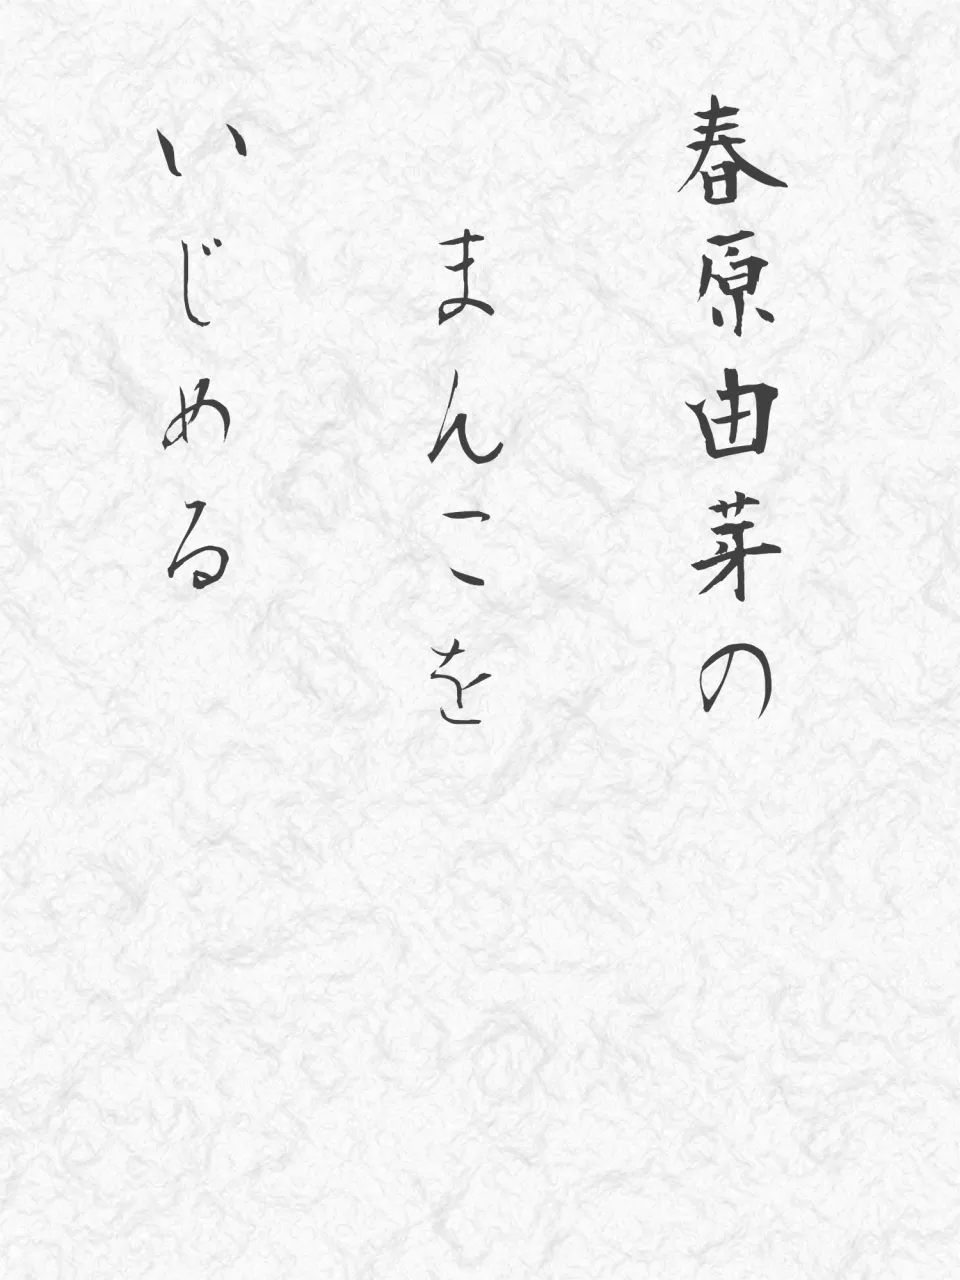 春原由芽の
まんこを
いじめる